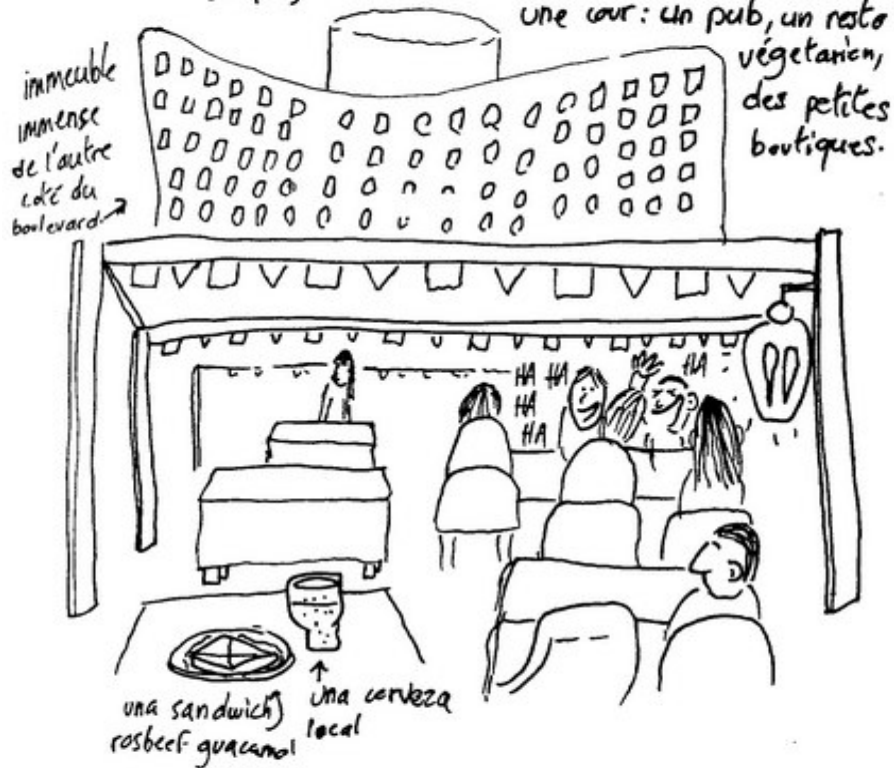 une cour : un pub, un resto
végetarien,
des petites
boutiques.
immeuble
immense
de l'autre
coté du
boulevard
HA HA HA
HA
HA
una sandwich
rosbeef guacamol
una cerveza
local